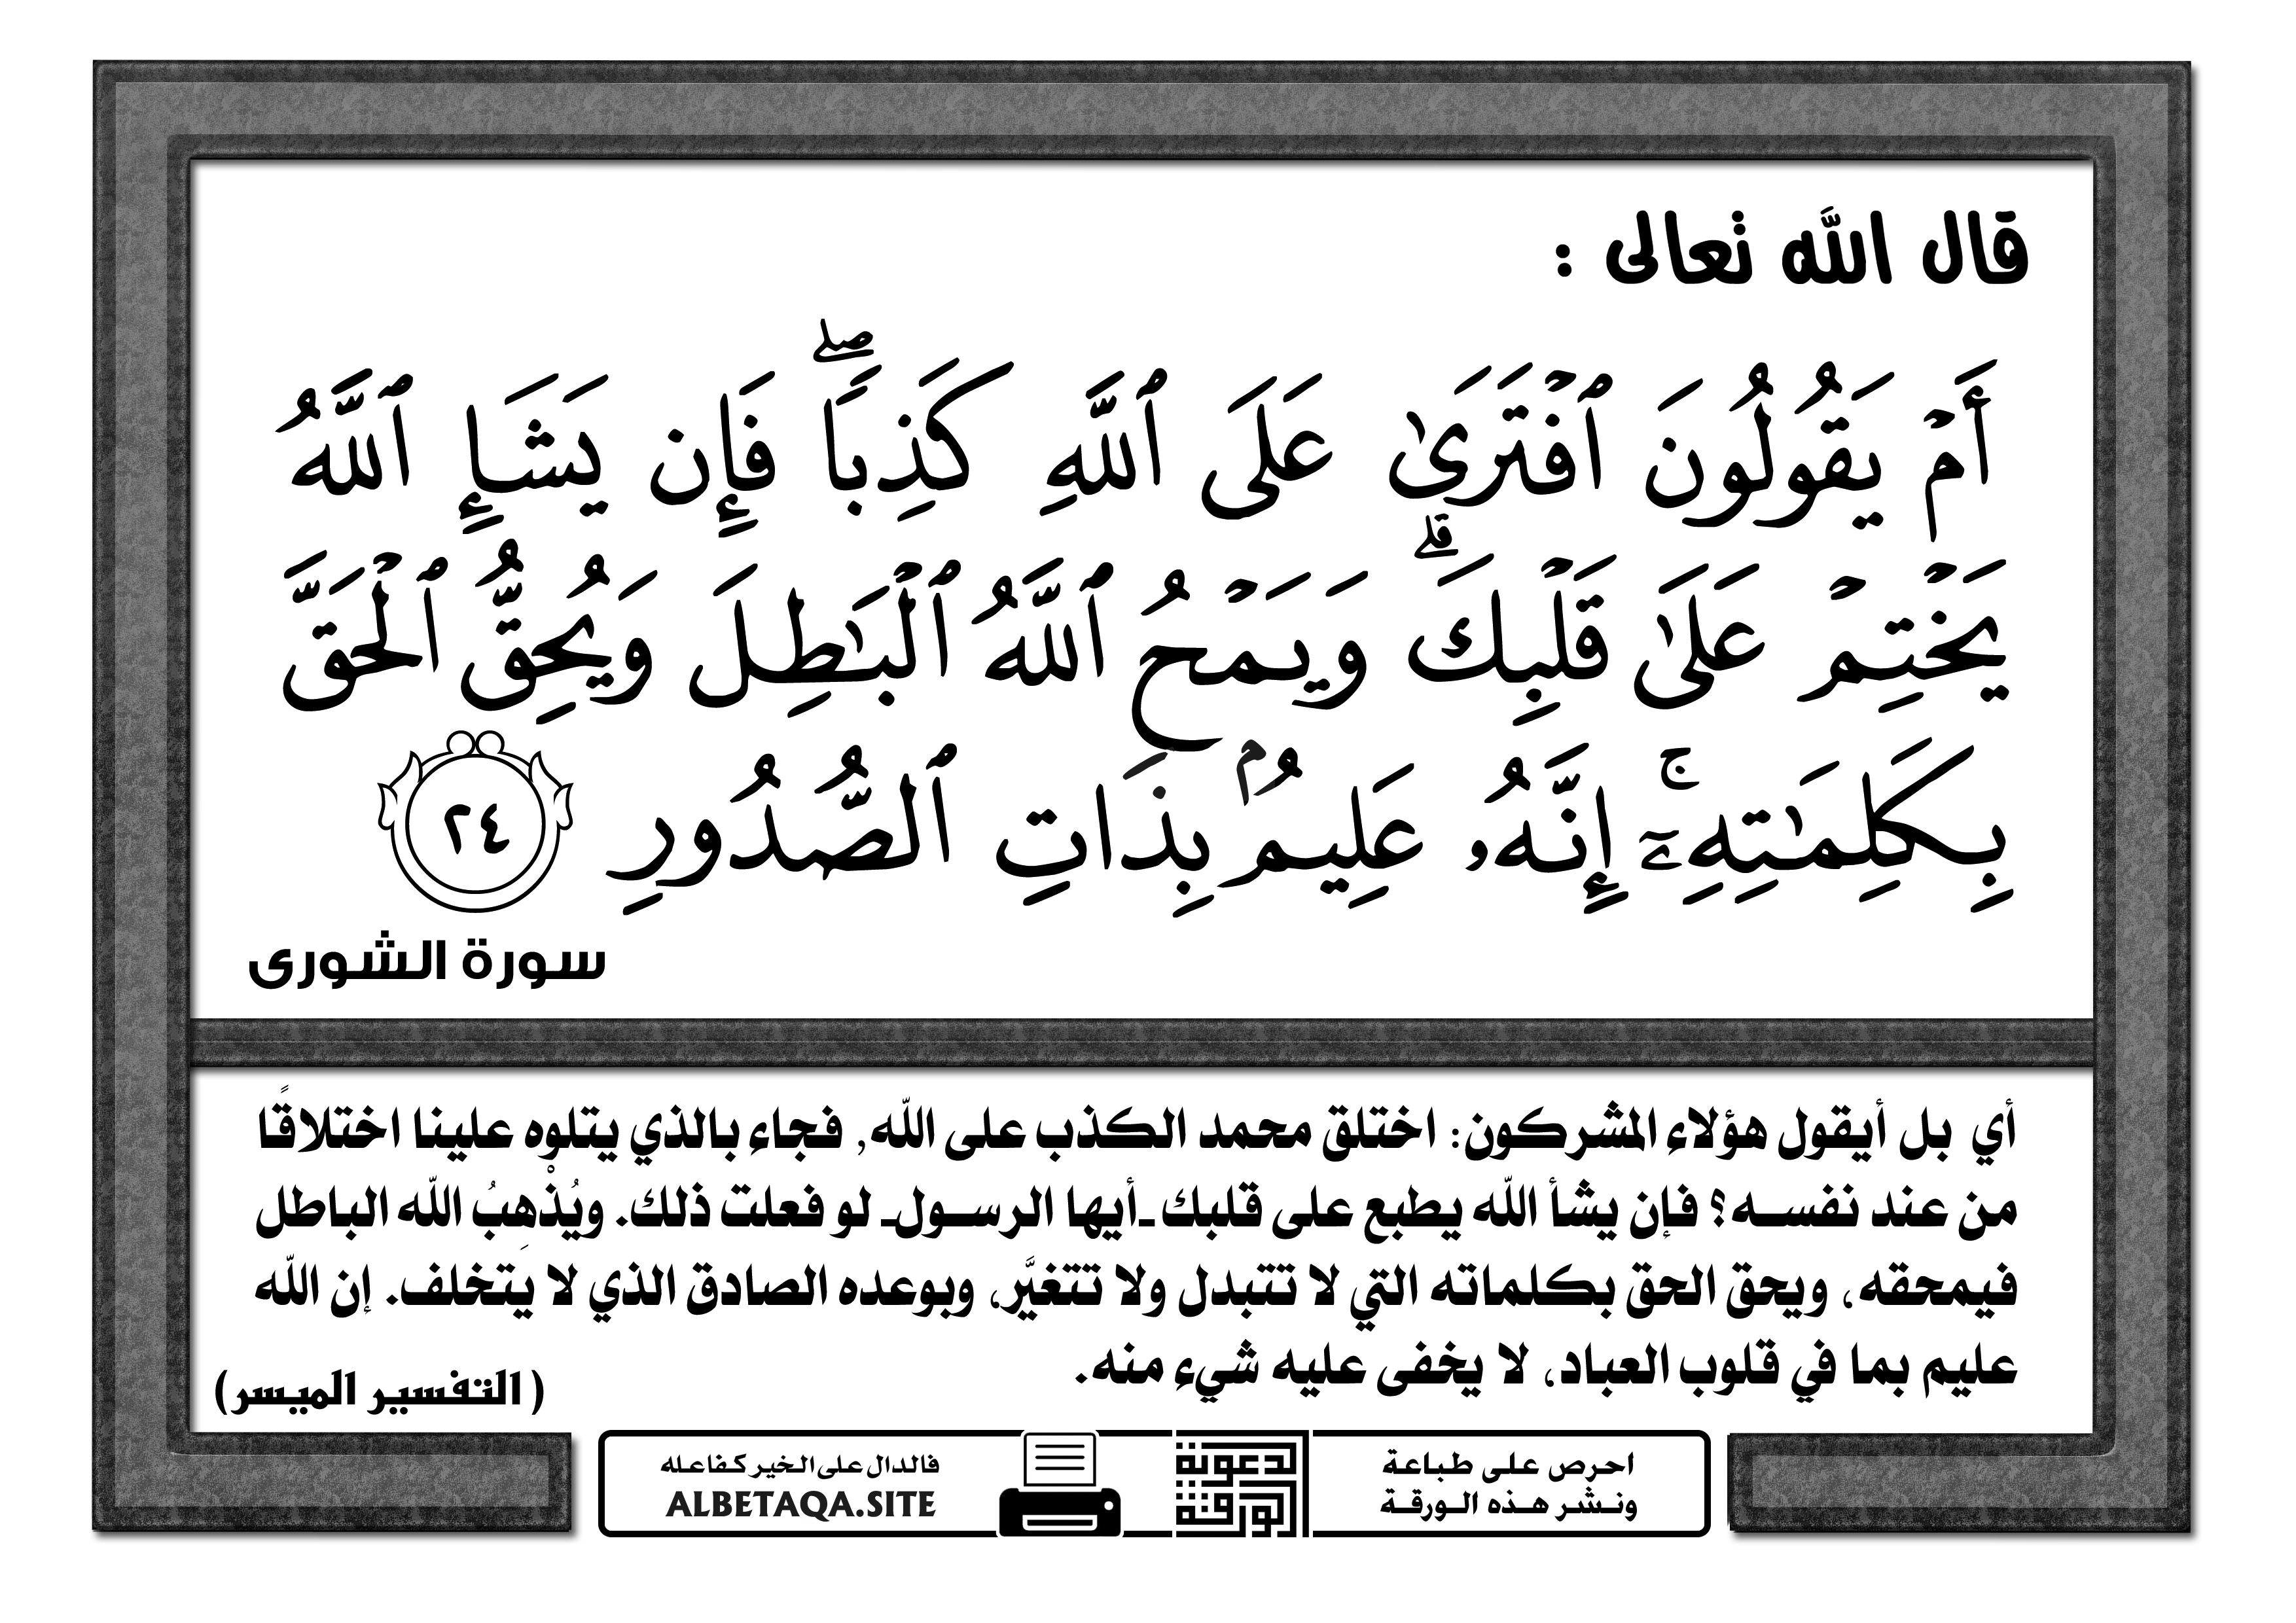 قال الله تعالى :
أَمۡ يَقُولُونَ ٱفۡتَرَىٰ عَلَى ٱللَّهِ كَذِبٗاۖ فَإِن يَشَإِ ٱللَّهُ
يَخۡتِمۡ عَلَىٰ قَلۡبِكَۗ وَيَمۡحُ ٱللَّهُ ٱلۡبَٰطِلَ وَيُحِقُّ ٱلۡحَقَّ
بِكَلِمَٰتِهِۦٓۚ إِنَّهُۥ عَلِيمُۢ بِذَاتِ ٱلصُّدُورِ ٢٤
سورة الشورى
أي بل أيقول هؤلاء المشركون: اختلق محمد الكذب على الله, فجاء بالذي يتلوه علينا اختلاقًا
من عند نفسه؟ فإن يشأ الله يطبع على قلبك ـ أيها الرسول ـ لو فعلت ذلك. ويُذْهِبُ الله الباطل
فيمحقه، ويحق الحق بكلماته التي لا تتبدل ولا تتغيَّر، وبوعده الصادق الذي لا يَتخلف. إن الله
عليم بما في قلوب العباد، لا يخفى عليه شيء منه.
( التفسير الميسر)
احرص على طباعة
ونشر هذه الورقة
لدعوتة
الورقة
فالدال على الخير كفاعله
ALBETAQA.SITE